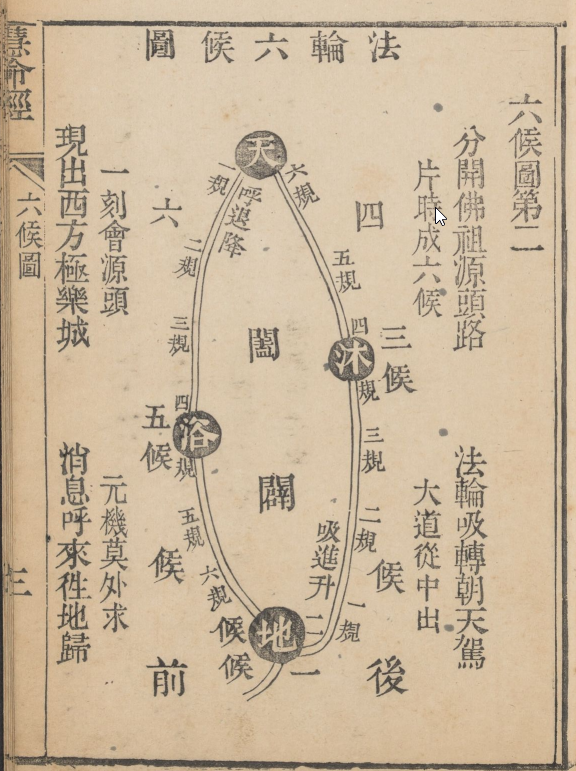 法輪六候圖
六候圖第二
分開佛祖源頭路
法輪吸轉朝天駕
片時成六候
大道從中出
天
六規
五規
四規
三規
二規
一規
沐
四候
三候
吸進升
二候
地
一候
後
闔
闢
呼退降
一規
二規
三規
四規
五規
六規
浴
六候
五候
前
一刻會源頭
元機莫外求
現出西方極樂城
消息呼來徃地歸
慧命經
六候圖
三